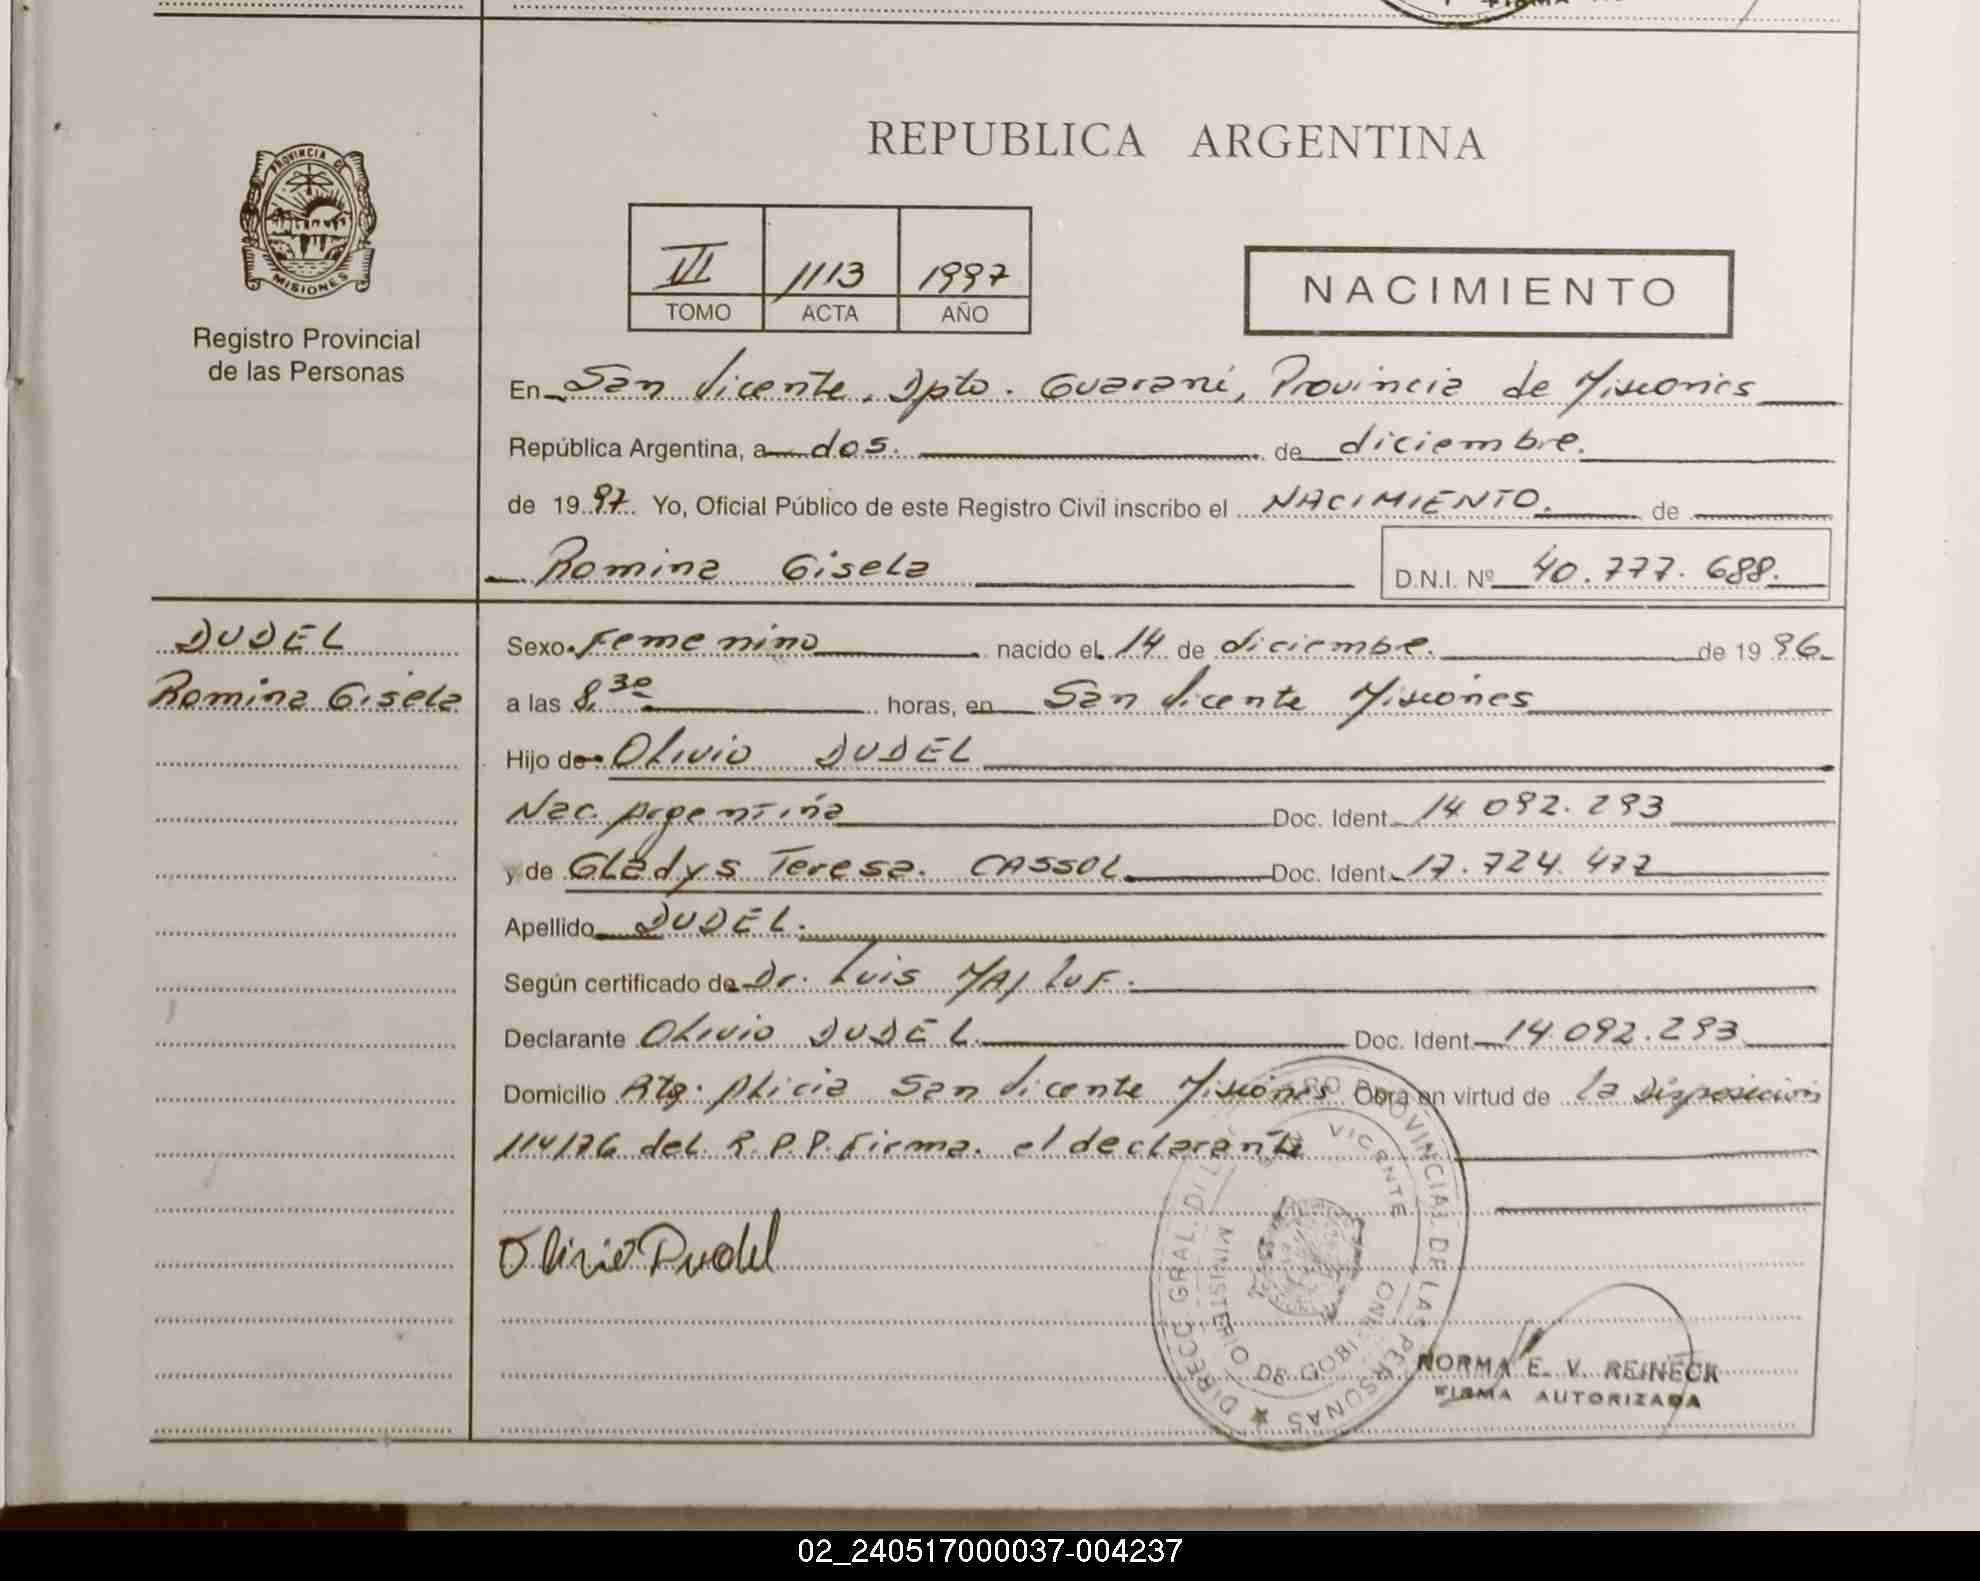 REPUBLICA ARGENTINA
PROVINCIA DE
MISIONES
Registro Provincial
de las Personas
1113 1997
TOMO ACTA AÑO
NACIMIENTO
En San Vicente, Dpto. Guaraní, Provincia de Misiones
República Argentina, a dos. de diciembre.
de 1997. Yo, Oficial Público de este Registro Civil inscribo el NACIMIENTO. de
Romina Gisela D.N.I. Nº 40.777.688.
DUDEL
Romina Gisela
Sexo Femenino nacido el 14 de diciembre. de 1996.
a las 8.30 horas, en San Vicente Misiones
Hijo de Olivio DUDEL
Nac. Argentina Doc. Ident. 14 092.293
y de Gladys Teresa. CASSOL. Doc. Ident. 17.724.477
Apellido DUDEL.
Según certificado de Dr. Luis MALUF.
Declarante Olivio DUDEL. Doc. Ident. 14.092.293
Domicilio Alicia San Vicente Misiones Obra en virtud de la Disposición
114/76 del R.P.P. Firma. el declarante
Olivio Dudel
DIRECC GRAL. DEL REGISTRO PROVINCIAL DE LAS PERSONAS
MINISTERIO DE GOBIERNO
VICENTE
NORMA E. V. REINECK
FIRMA AUTORIZADA
02_240517000037-004237